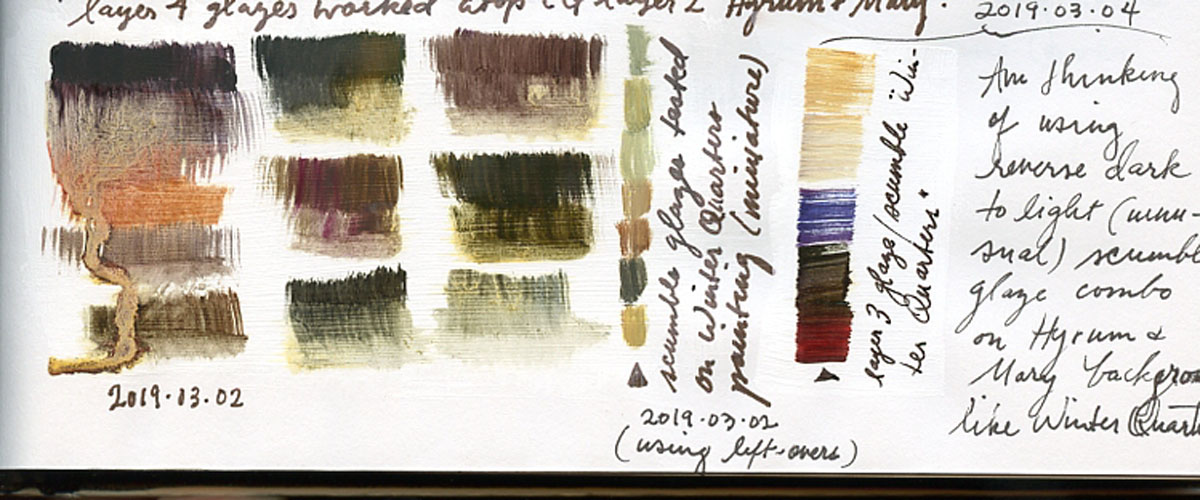 layer 4 glazes worked atop layer 2 Hyrum & Mary.
2019.03.04
2019.03.02
scumble glazes tested
on Winter Quarters
painting (miniature)
2019.03.02
(using left-overs)
layer 3 glaze/scumble "Win-
ter Quarters"
Am thinking
of using
reverse dark
to light (unu-
sual) scumble
glaze combo
on Hyrum &
Mary backgrou
like Winter Quart